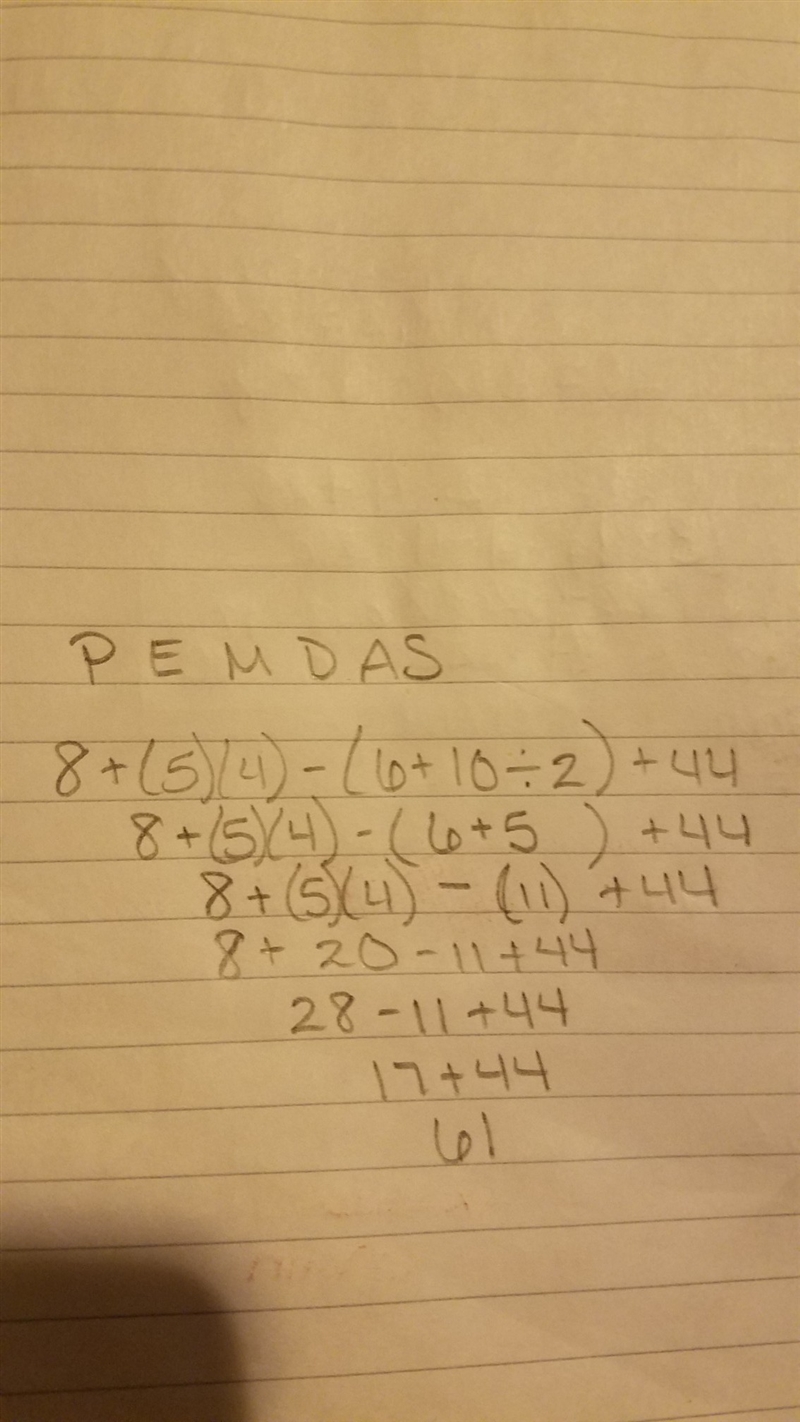 PEMDAS
8+(5)(4)-(6+10÷2)+44
8+(5)(4)-(6+5 )+44
8+(5)(4)-(11)+44
8+20-11+44
28-11+44
17+44
61